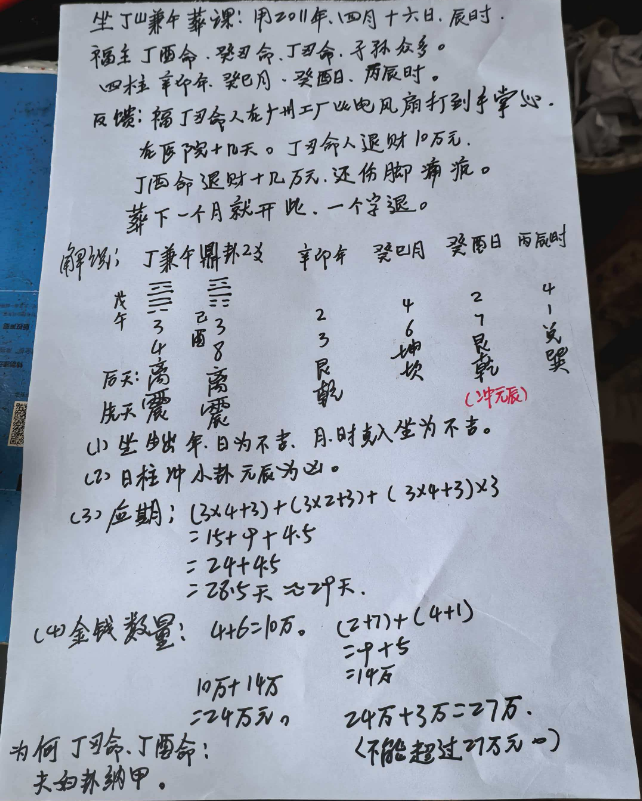 坐丁山兼午葬课：用2011年、四月十六日、辰时.
福主丁酉命、癸丑命、丁丑命、子孙众多。
四柱 辛卯年、癸巳月、癸酉日、丙辰时。
反馈：福丁丑命人在广州工厂 电风扇打到手掌心.
在医院十几天。丁丑命人退财10万元.
丁酉命退财十几万元、还伤脚痛 。
葬下一个月就开此、一个字退。
解说： 丁兼午鼎卦2爻 辛卯年 癸巳月 癸酉日 丙辰时
戊午 3 己酉 3 2 4 2 4
4 8 3 6 7 1
后天：离 离 艮 坤 艮 兑
先天：震 震 乾 坎 乾 巽
(冲元辰)
(1) 坐生出年、日为不吉、月、时克入坐为不吉。
(2) 日柱冲小卦元辰为凶。
(3) 应期：(3×4+3)+(3×2+3)+(3×4+3)×3
=15+9+4.5
=24+4.5
=28.5天≈29天.
(4) 金钱数量： 4+6=10万。 (2+7)+(4+1)
=9+5
=14万
10万+14万
=24万元。 24万+3万=27万.
(不能超过27万元)
为何丁丑命、丁酉命：
夫妇卦纳甲。